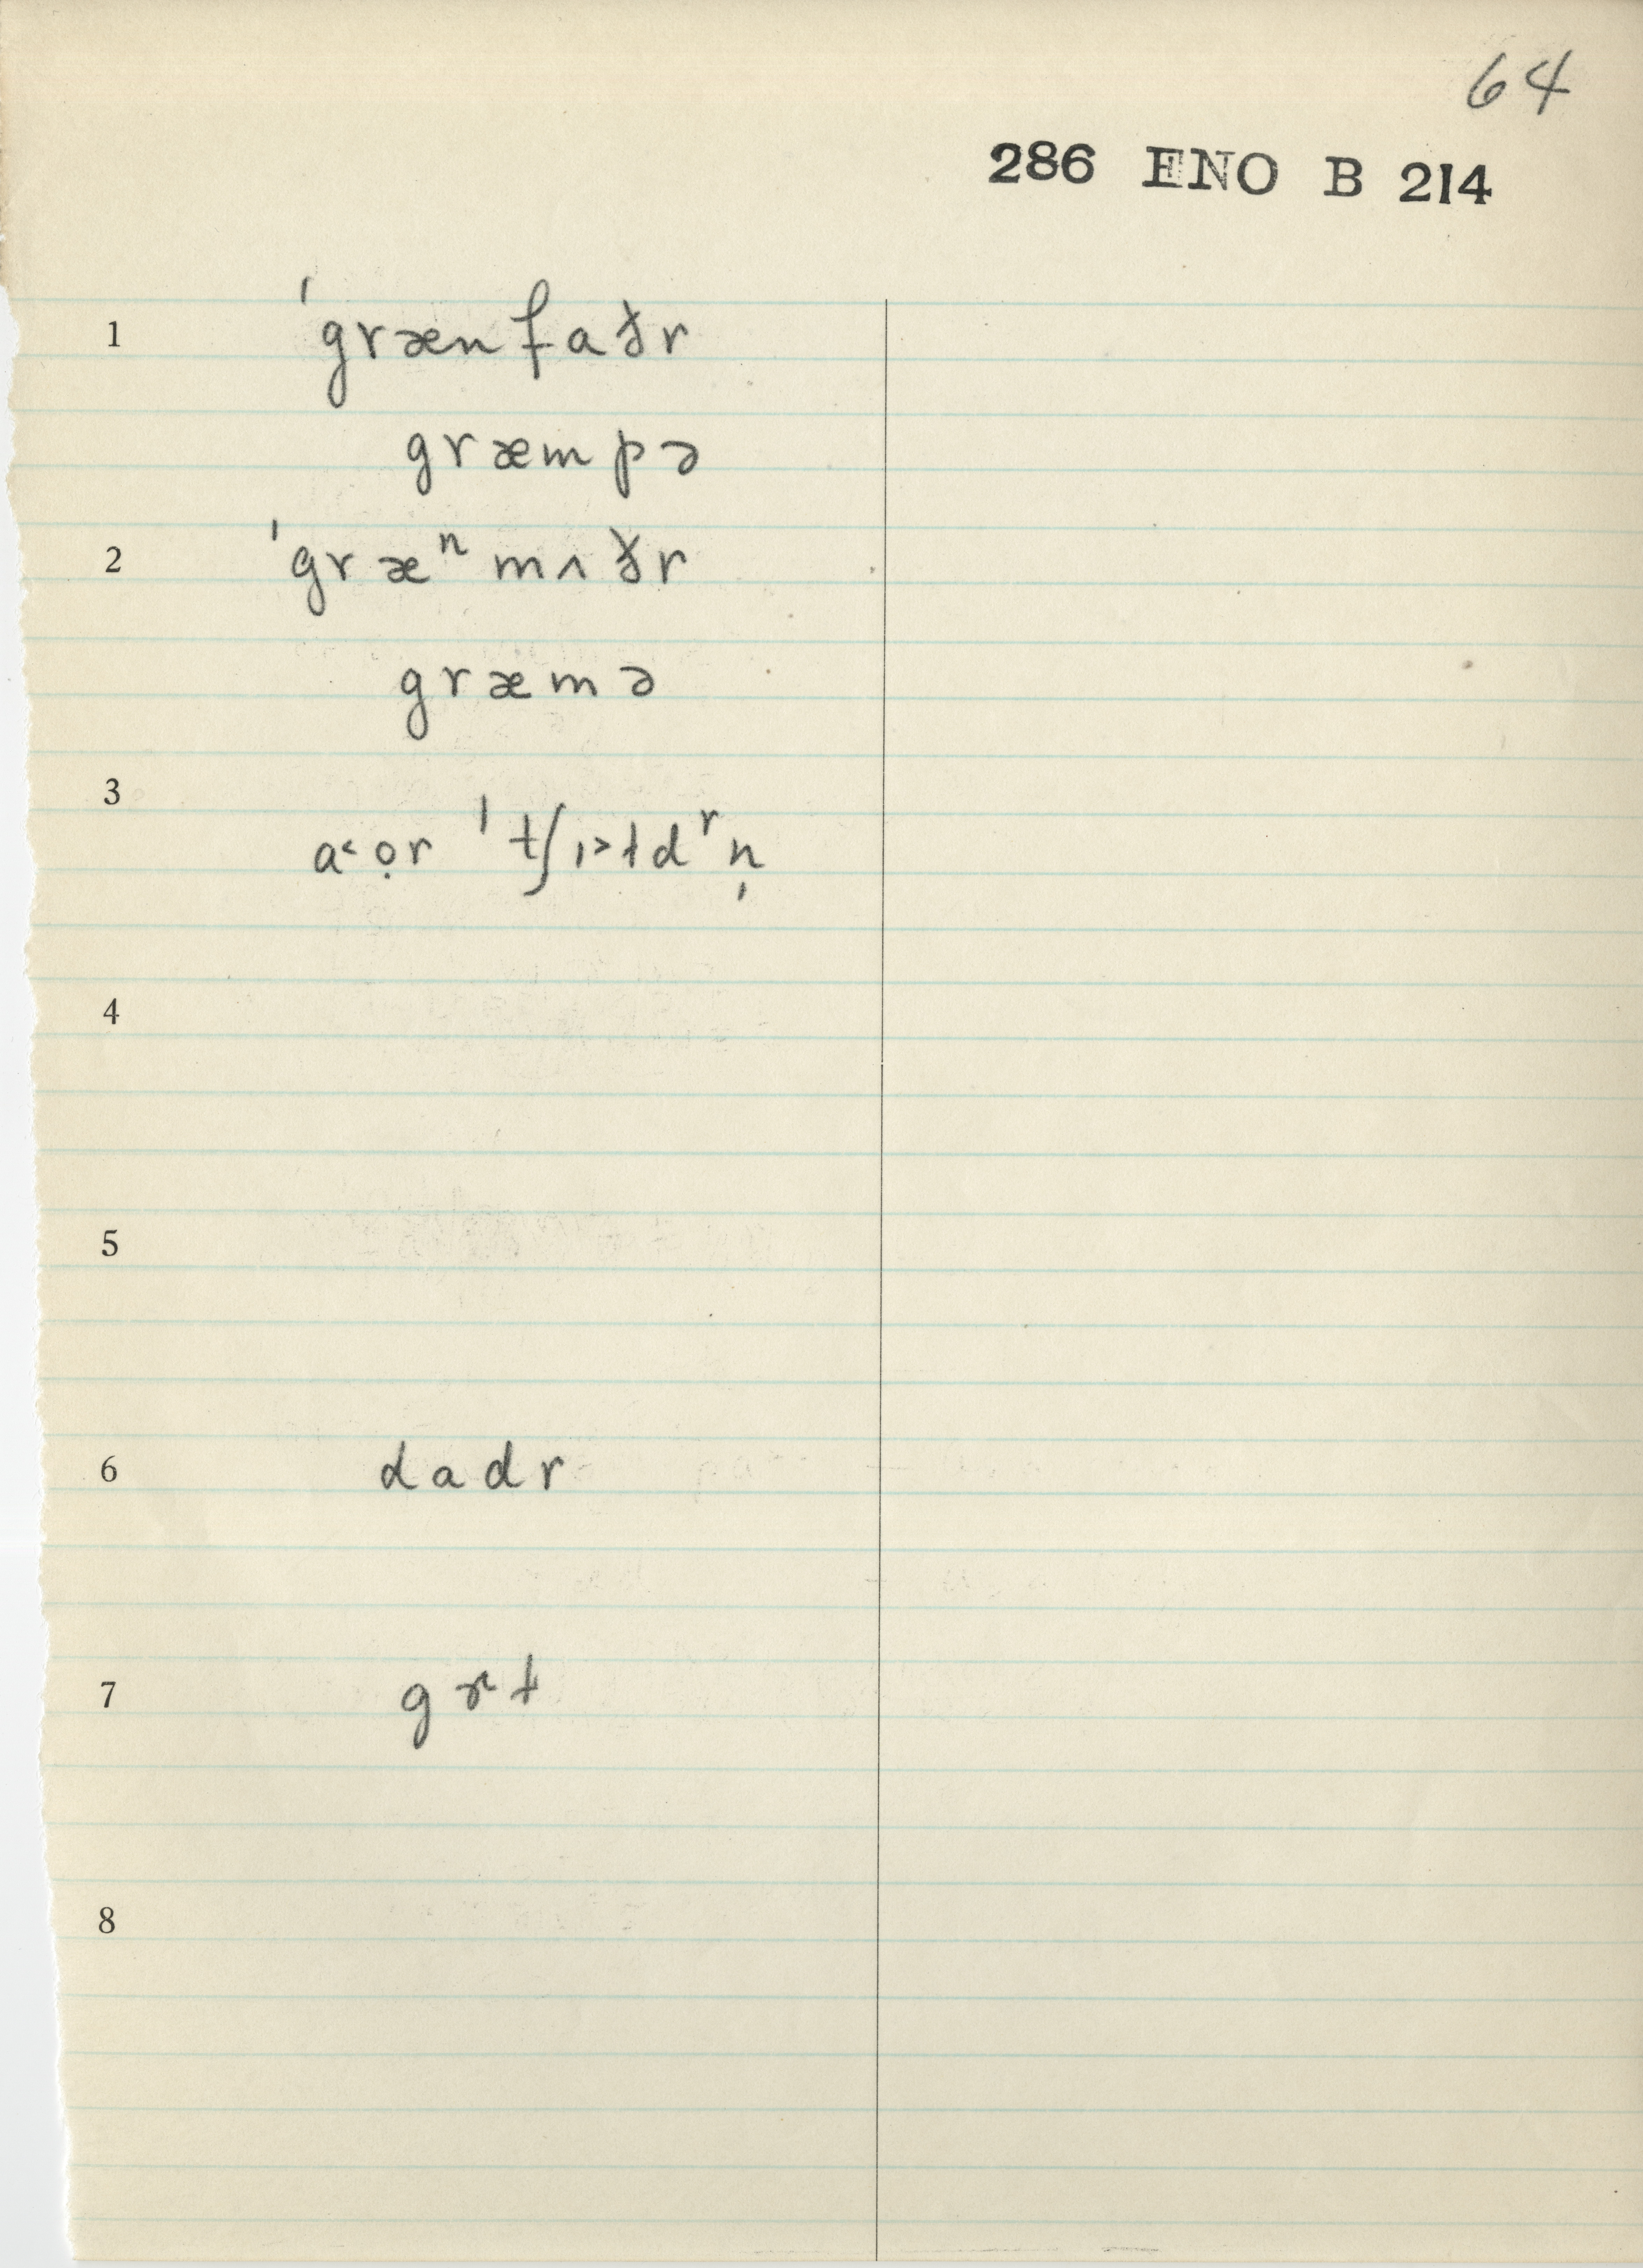 64
286 ENO B 214
1 ˈgrænfaðr
græmpə
2 ˈgræⁿmʌðr
græmə
3
a˂ọr ˈtʃɪ˃ɫdʳn̩
4
5
6 dadr
7 gɚɫ
8